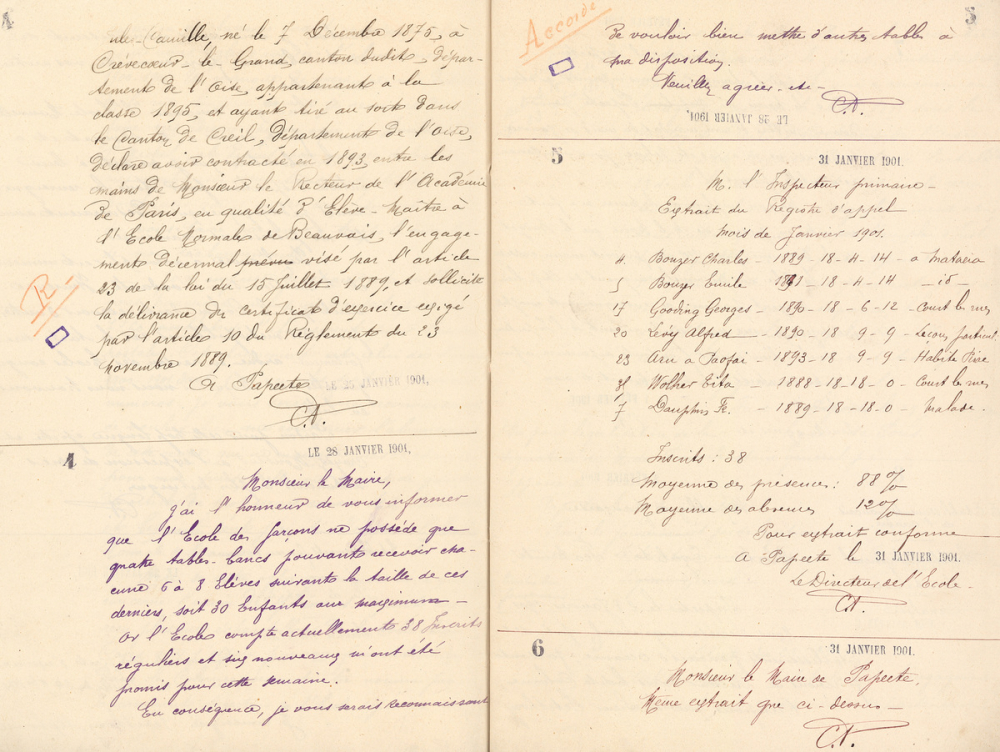 4
né le 7 Décembre 1875, à
Crèvecœur-le-Grand, canton dudit, dépar-
tement de l'Oise, appartenant à la
classe 1895, et ayant tiré au sort dans
le Canton de Creil, département de l'Oise,
déclare avoir contracté en 1893, entre les
mains de Monsieur le Recteur de l'Académie
de Paris, en qualité d'Elève-Maître à
l'Ecole Normale de Beauvais, l'engage-
ment décennal prévu visé par l'article
23 de la loi du 15 Juillet 1889, et sollicite
la délivrance du certificat d'exercice exigé
par l'article 10 du Règlement du 23
novembre 1889.
R-
A Papeete LE 25 JANVIER 1901,
4
LE 28 JANVIER 1901,
Monsieur le Maire,
j'ai l'honneur de vous informer
que l'Ecole des Garçons ne possède que
quatre tables-bancs pouvant recevoir cha-
cune 6 à 8 Elèves suivant la taille de ces
derniers, soit 30 Enfants au maximum -
Or l'Ecole compte actuellement 38 Inscrits
réguliers et six nouveaux m'ont été
promis pour cette semaine.
En conséquence, je vous serais reconnaissant
5
Accordé
de vouloir bien mettre d'autres tables à
ma disposition.
Veuillez agréer, etc-
LE 28 JANVIER 1901,
5
31 JANVIER 1901.
M. l'Inspecteur primaire -
Extrait du Registre d'appel
Mois de Janvier 1901.
4. Bouzer Charles - 1889 - 18 - 4 - 14 - à Mataiea
5 Bouzer Emile 1891 - 18 - 4 - 14 - id -
17 Gooding Georges - 1890 - 18 - 6 - 12 - Court les rues
20 Lévy Alfred - 1890 - 18 - 9 - 9 - Leçons particul.
23 Aru a Paofai - 1893 - 18 9 - 9 - Habite
Wohler Eita - 1888 - 18 - 18 - 0 - Court les rues
7 Dauphin Fr. - 1889 - 18 - 18 - 0 - Malade.
Inscrits : 38
Moyenne des présences : 88 %
Moyenne des absences 12 %
Pour extrait conforme
A Papeete le 31 JANVIER 1901.
Le Directeur de l'Ecole -
6
31 JANVIER 1901.
Monsieur le Maire de Papeete,
Même extrait que ci-dessus -